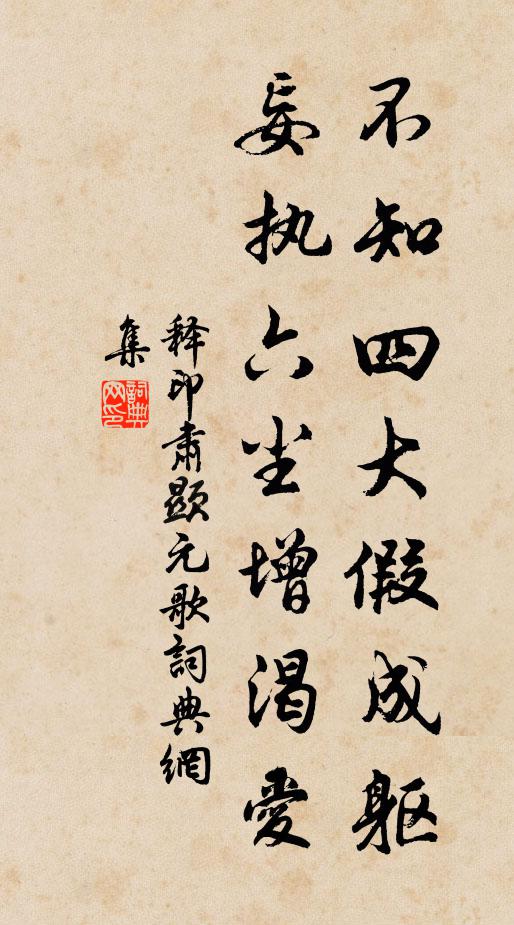 不知四大假成躯
妄执六尘增渴爱
释印肃显元歌詞典網
集
詞典網印